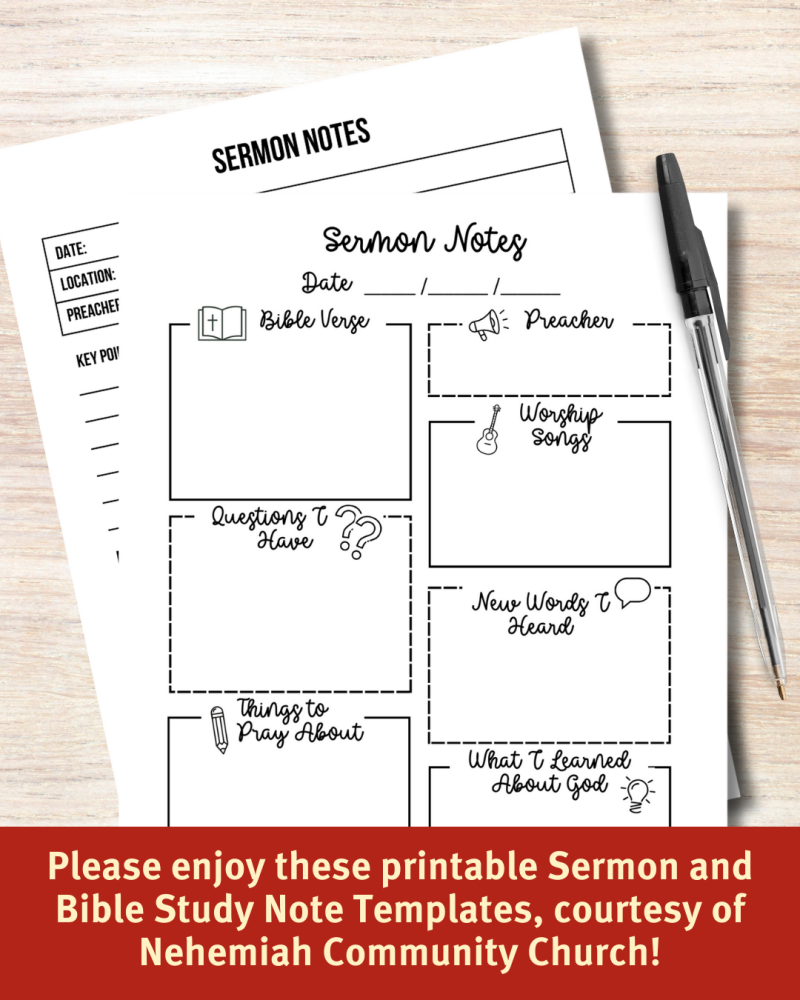 SERMON NOTES
DATE:
LOCATION:
PREACHER
KEY POI
Sermon Notes
Date ____ /_____ /_____
Bible Verse
Preacher
Worship
Songs
Questions I
Have
New Words I
Heard
Things to
Pray About
What I Learned
About God
Please enjoy these printable Sermon and
Bible Study Note Templates, courtesy of
Nehemiah Community Church!